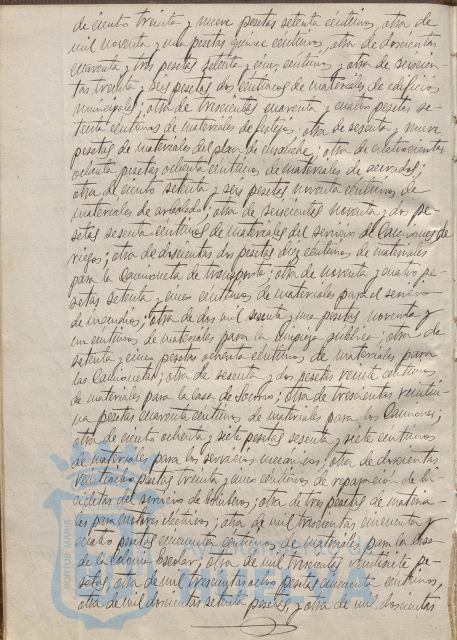 de ciento treinta y nueve pesetas setenta céntimos, otra de
mil noventa y una pesetas quince céntimos, otra de doscientas
cuarenta y tres pesetas setenta y cinco céntimos, otra de seiscien-
tas treinta y seis pesetas dos céntimos de materiales de edificios
municipales; otra de trescientas cuarenta y cuatro pesetas se-
tenta céntimos de materiales de festejos; otra de sesenta y nueve
pesetas de materiales del plan de ensanche; otra de cuatrocientas
ochenta pesetas ochenta céntimos de materiales de acerados;
otra de ciento setenta y seis pesetas noventa céntimos de
materiales de arbolado; otra de seiscientas noventa y dos pe-
setas sesenta céntimos de materiales del servicio de Camiones de
riegos; otra de doscientas dos pesetas diez céntimos de materiales
para la Camioneta de transporte; otra de noventa y cuatro pe-
setas setenta y cinco céntimos de materiales para el servicio
de incendios; otra de dos mil sesenta y una pesetas noventa y
un céntimos de materiales para la limpieza pública; otra de
setenta y cinco pesetas ochenta céntimos de materiales para
las Camionetas; otra de sesenta y dos pesetas veinte céntimos
de materiales para la Casa de Socorro; otra de trescientas veintiu-
na pesetas cuarenta céntimos de materiales para los Camiones;
otra de ciento ochenta y siete pesetas sesenta y siete céntimos
de materiales para los servicios mecánicos; otra de doscientas
veintiocho pesetas treinta y cinco céntimos de reparación de bi-
cicletas del servicio de bomberos; otra de tres pesetas de materia-
les para motores eléctricos; otra de mil trescientas cincuenta y
cuatro pesetas cincuenta céntimos de materiales para la obra
de la Cocina Escolar; otra de mil trescientas veintisiete pe-
setas, otra de mil trescientas ocho pesetas cincuenta céntimos,
otra de mil doscientas setenta pesetas, y otra de mil doscientas
PORTUS MARIS
Ayuntamiento de
HUELVA